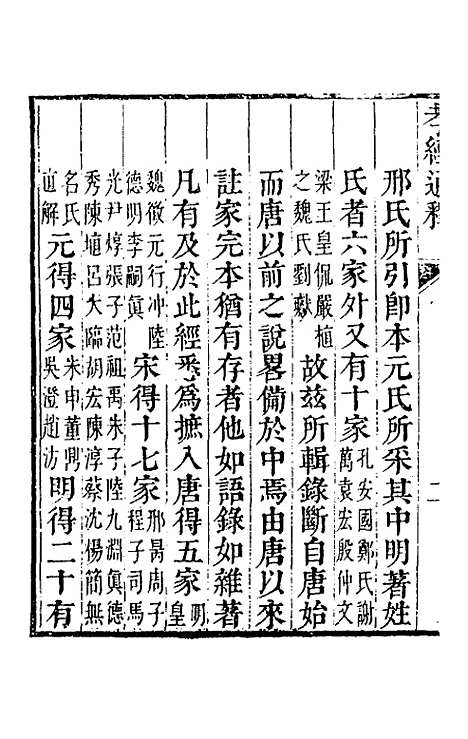 孝經通釋
二
邢氏所引卽本元氏所采其中明著姓
氏者六家外又有十家孔安國鄭氏謝萬袁宏殷仲文
梁王皇侃嚴植之魏氏劉瓛故茲所輯錄斷自唐始
而唐以前之說畧備於中焉由唐以來
註家完本猶有存者他如語錄如雜著
凡有及於此經悉爲摭入唐得五家明皇
魏徵元行冲陸德明李嗣眞宋得十七家邢昺周子程子司馬
光尹焞張子范祖禹朱子陸九淵眞德秀陳埴呂大臨胡宏陳淳蔡沈楊簡無
名氏直解元得四家朱申董鼎吳澄趙汸明得二十有